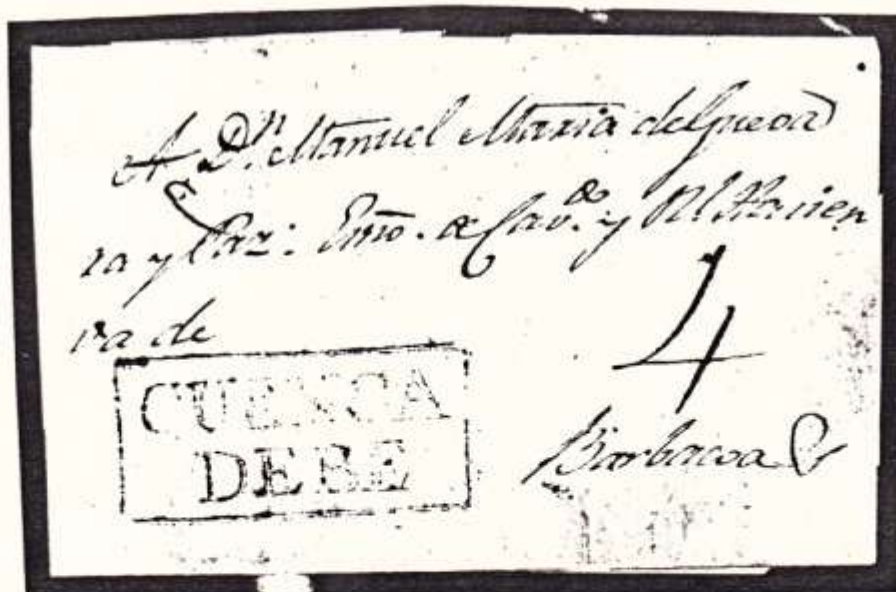 A Dn. Manuel Maria delgueda
ra y Paz: Emo. de Cavdo. y Rl. Hacien
da de
4
CUENCA
DEBE
Barbacoa